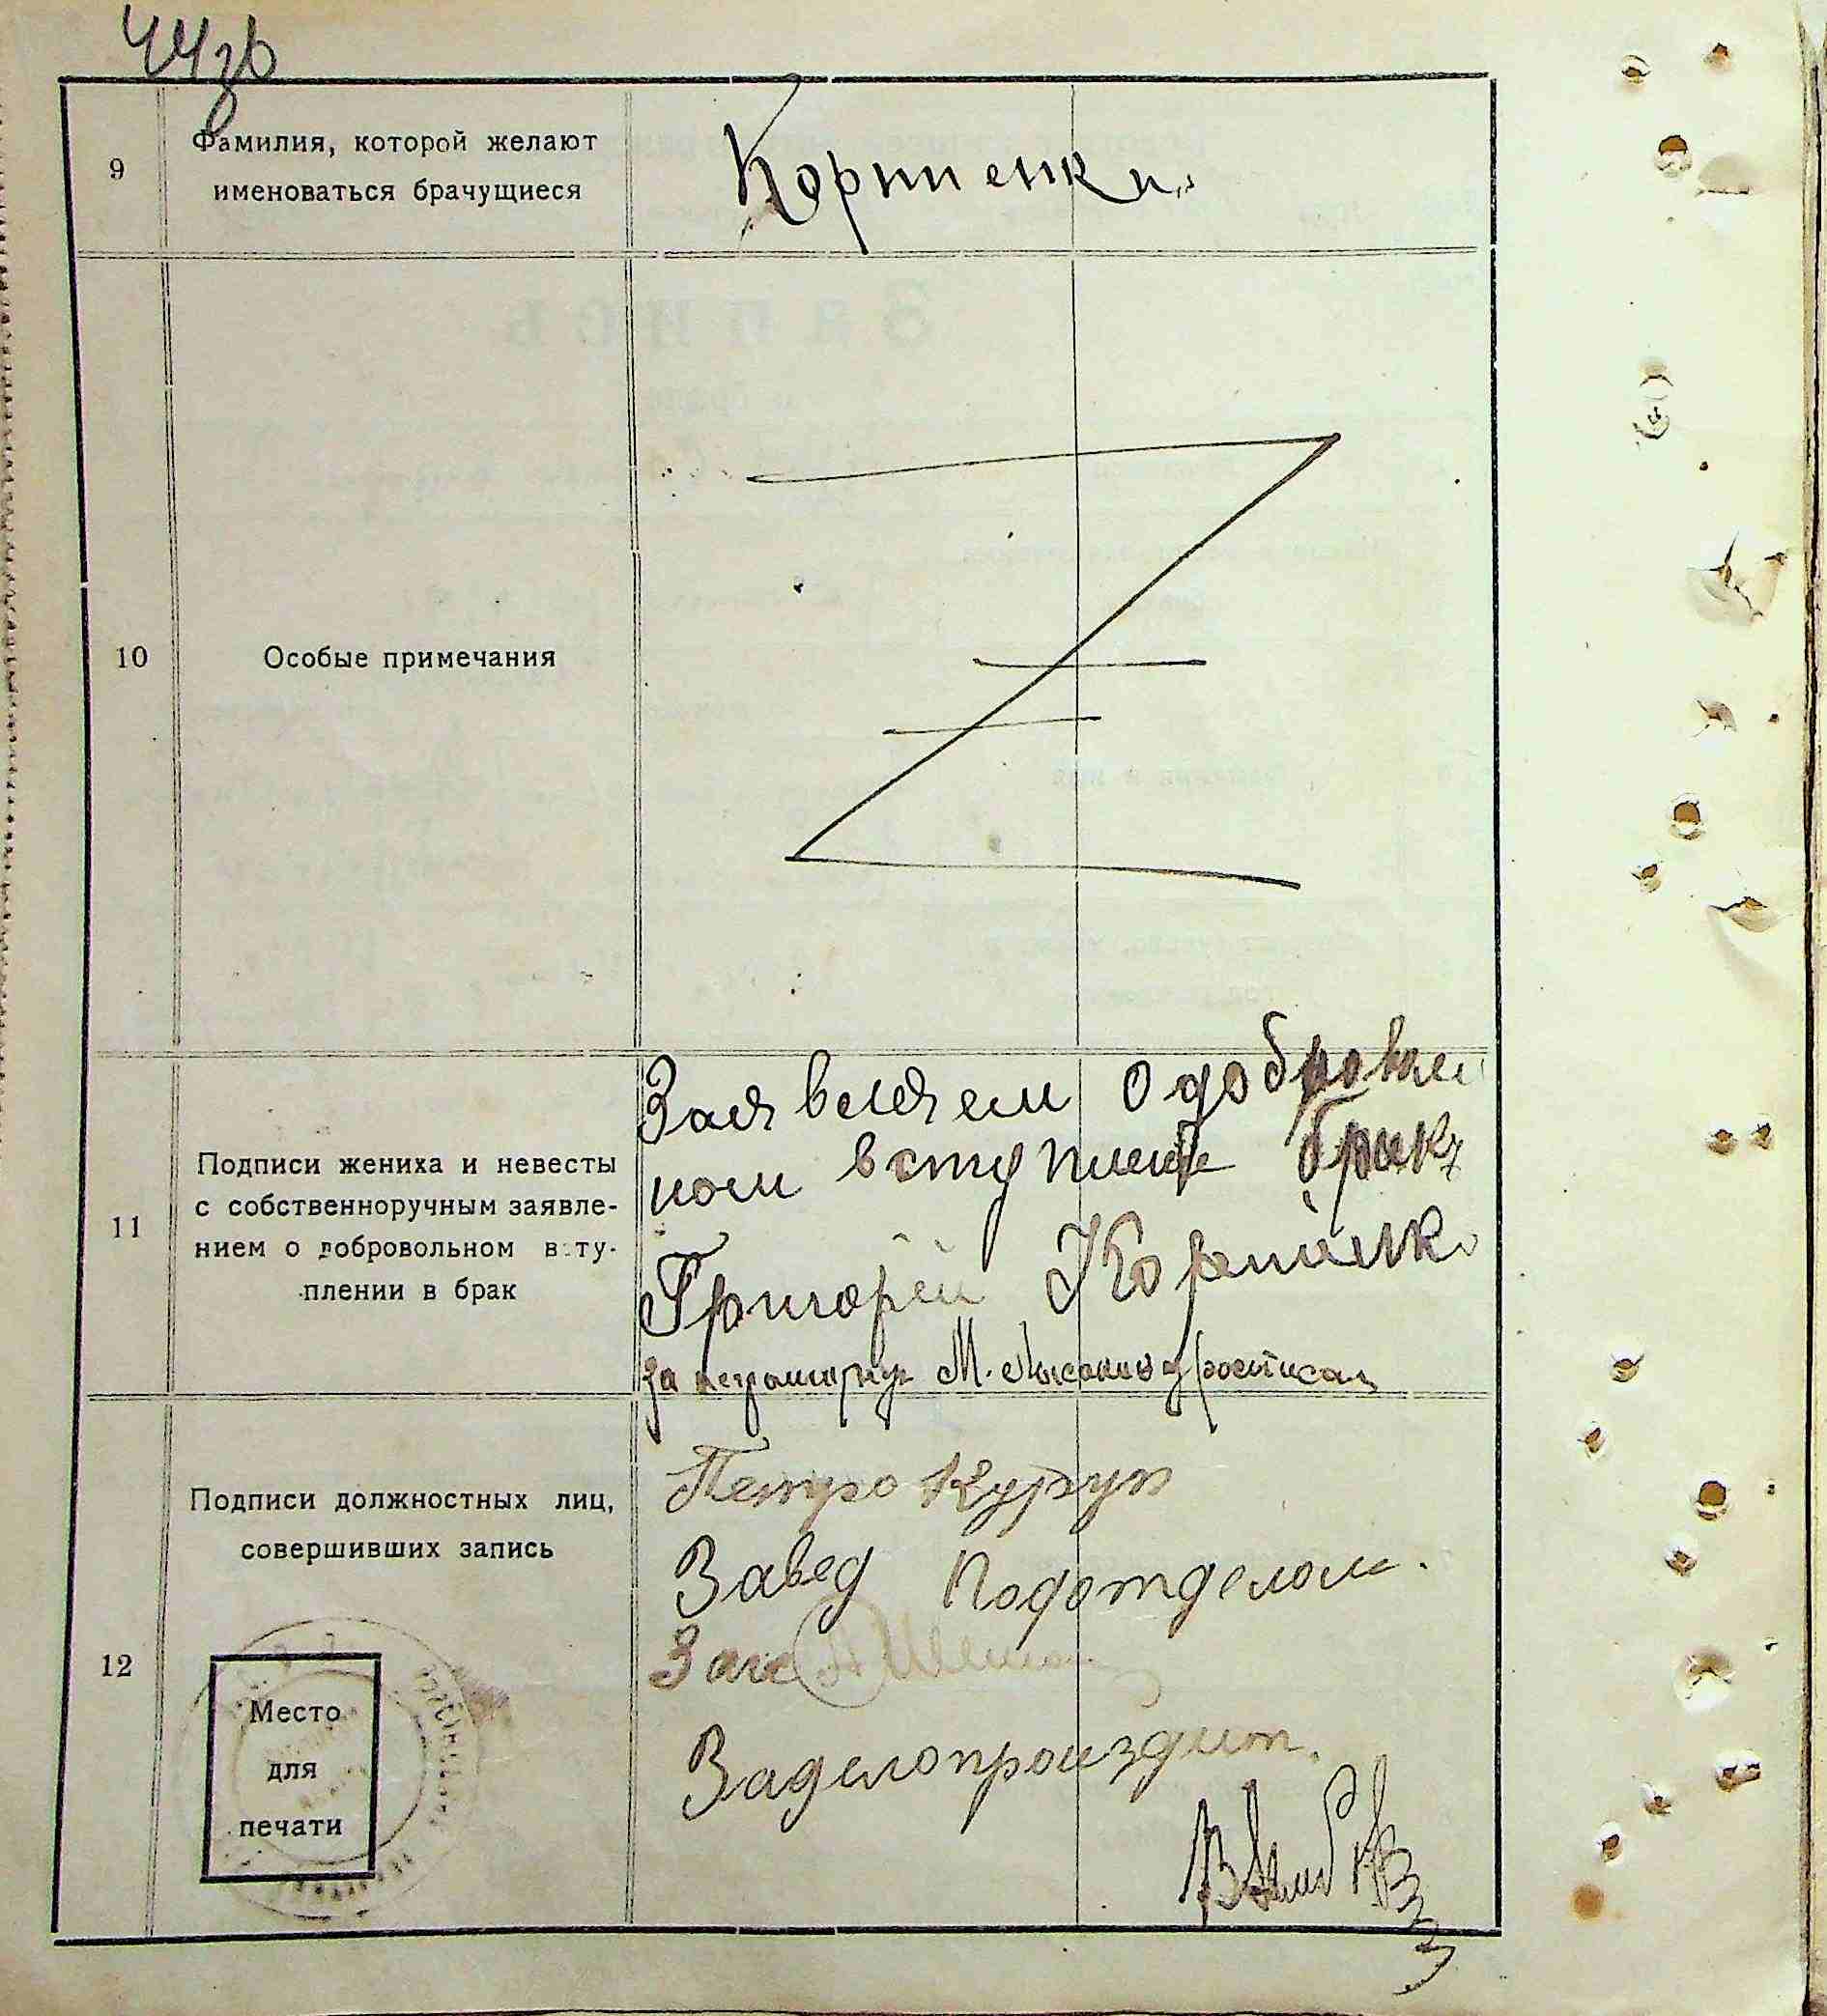 44зв
9
Фамилия, которой желают
именоваться брачущиеся
Корниенки
10
Особые примечания
11
Подписи жениха и невесты
с собственноручным заявле-
нием о добровольном всту-
плении в брак
Заявляем о добровол
ном вступлении брак
Григорей Корниенко
за неграмотную М. росписал
12
Подписи должностных лиц,
совершивших запись
Петро
Завед Подотделом.
Загс
За делопроиздит.
Место
для
печати